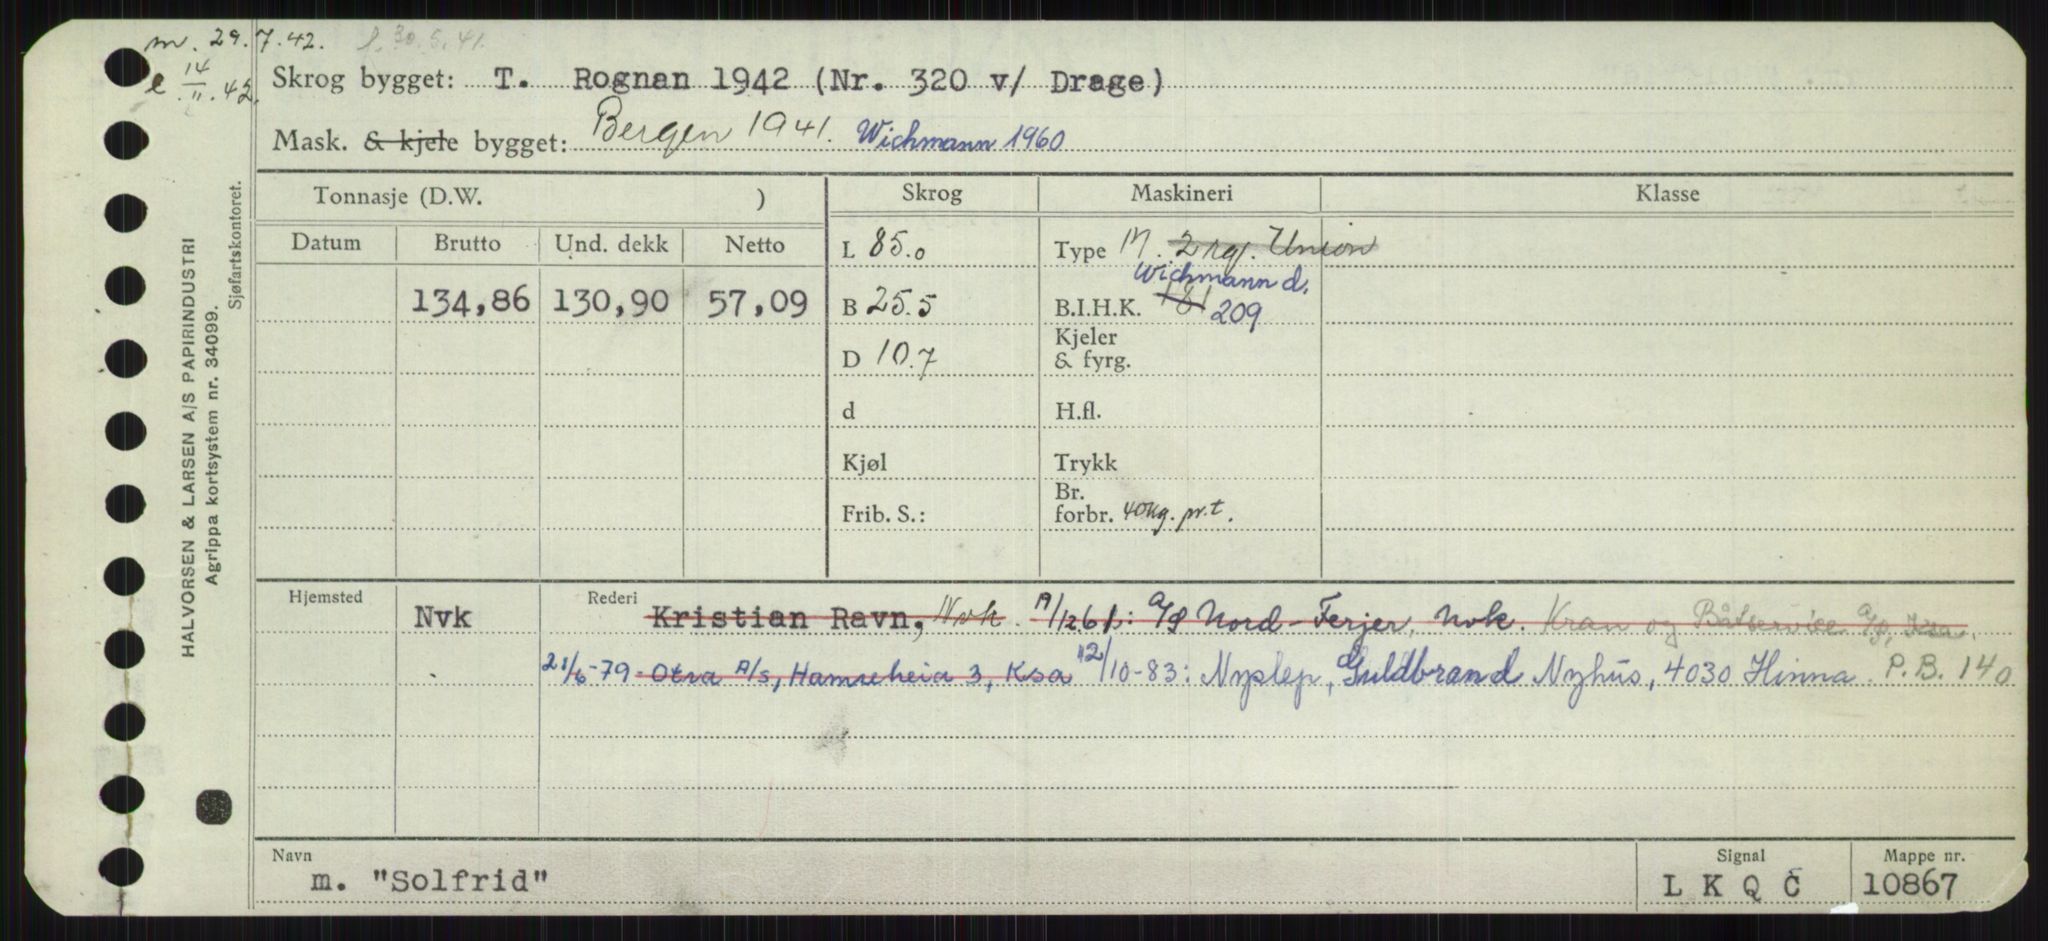 m. 29.7.42. l. 30.5.41.
e 14/11.42.
Skrog bygget: T. Rognan 1942 (Nr. 320 v/ Drage)
Mask. & kjele bygget: Bergen 1941. Wichmann 1960
Tonnasje (D.W. ) Skrog Maskineri Klasse
Datum Brutto Und. dekk Netto L 85.0 Type M. 2 rgf. Union
Wichmann d.
134,86 130,90 57,09 B 25.5 B.I.H.K. 181 209
D 10.7 Kjeler & fyrg.
d H.fl.
Kjøl Trykk
Frib. S.: Br. forbr. 40 kg. pr. t.
Hjemsted Nvk Rederi Kristian Ravn, Nvk. 19/12 61: A/S Nord-Ferjer, Nvk. Kran og Båtservice A/S, Ksa.
21/6-79 Otra A/S, Hamreheia 3, Ksa 12/10-83: Nyslep, Guldbrand Nyhus, 4030 Hinna. P.B. 140
Navn Signal Mappe nr.
m. "Solfrid" L K Q C 10867
HALVORSEN & LARSEN A/S PAPIRINDUSTRI
Agrippa kortsystem nr. 34099.
Sjøfartskontoret.